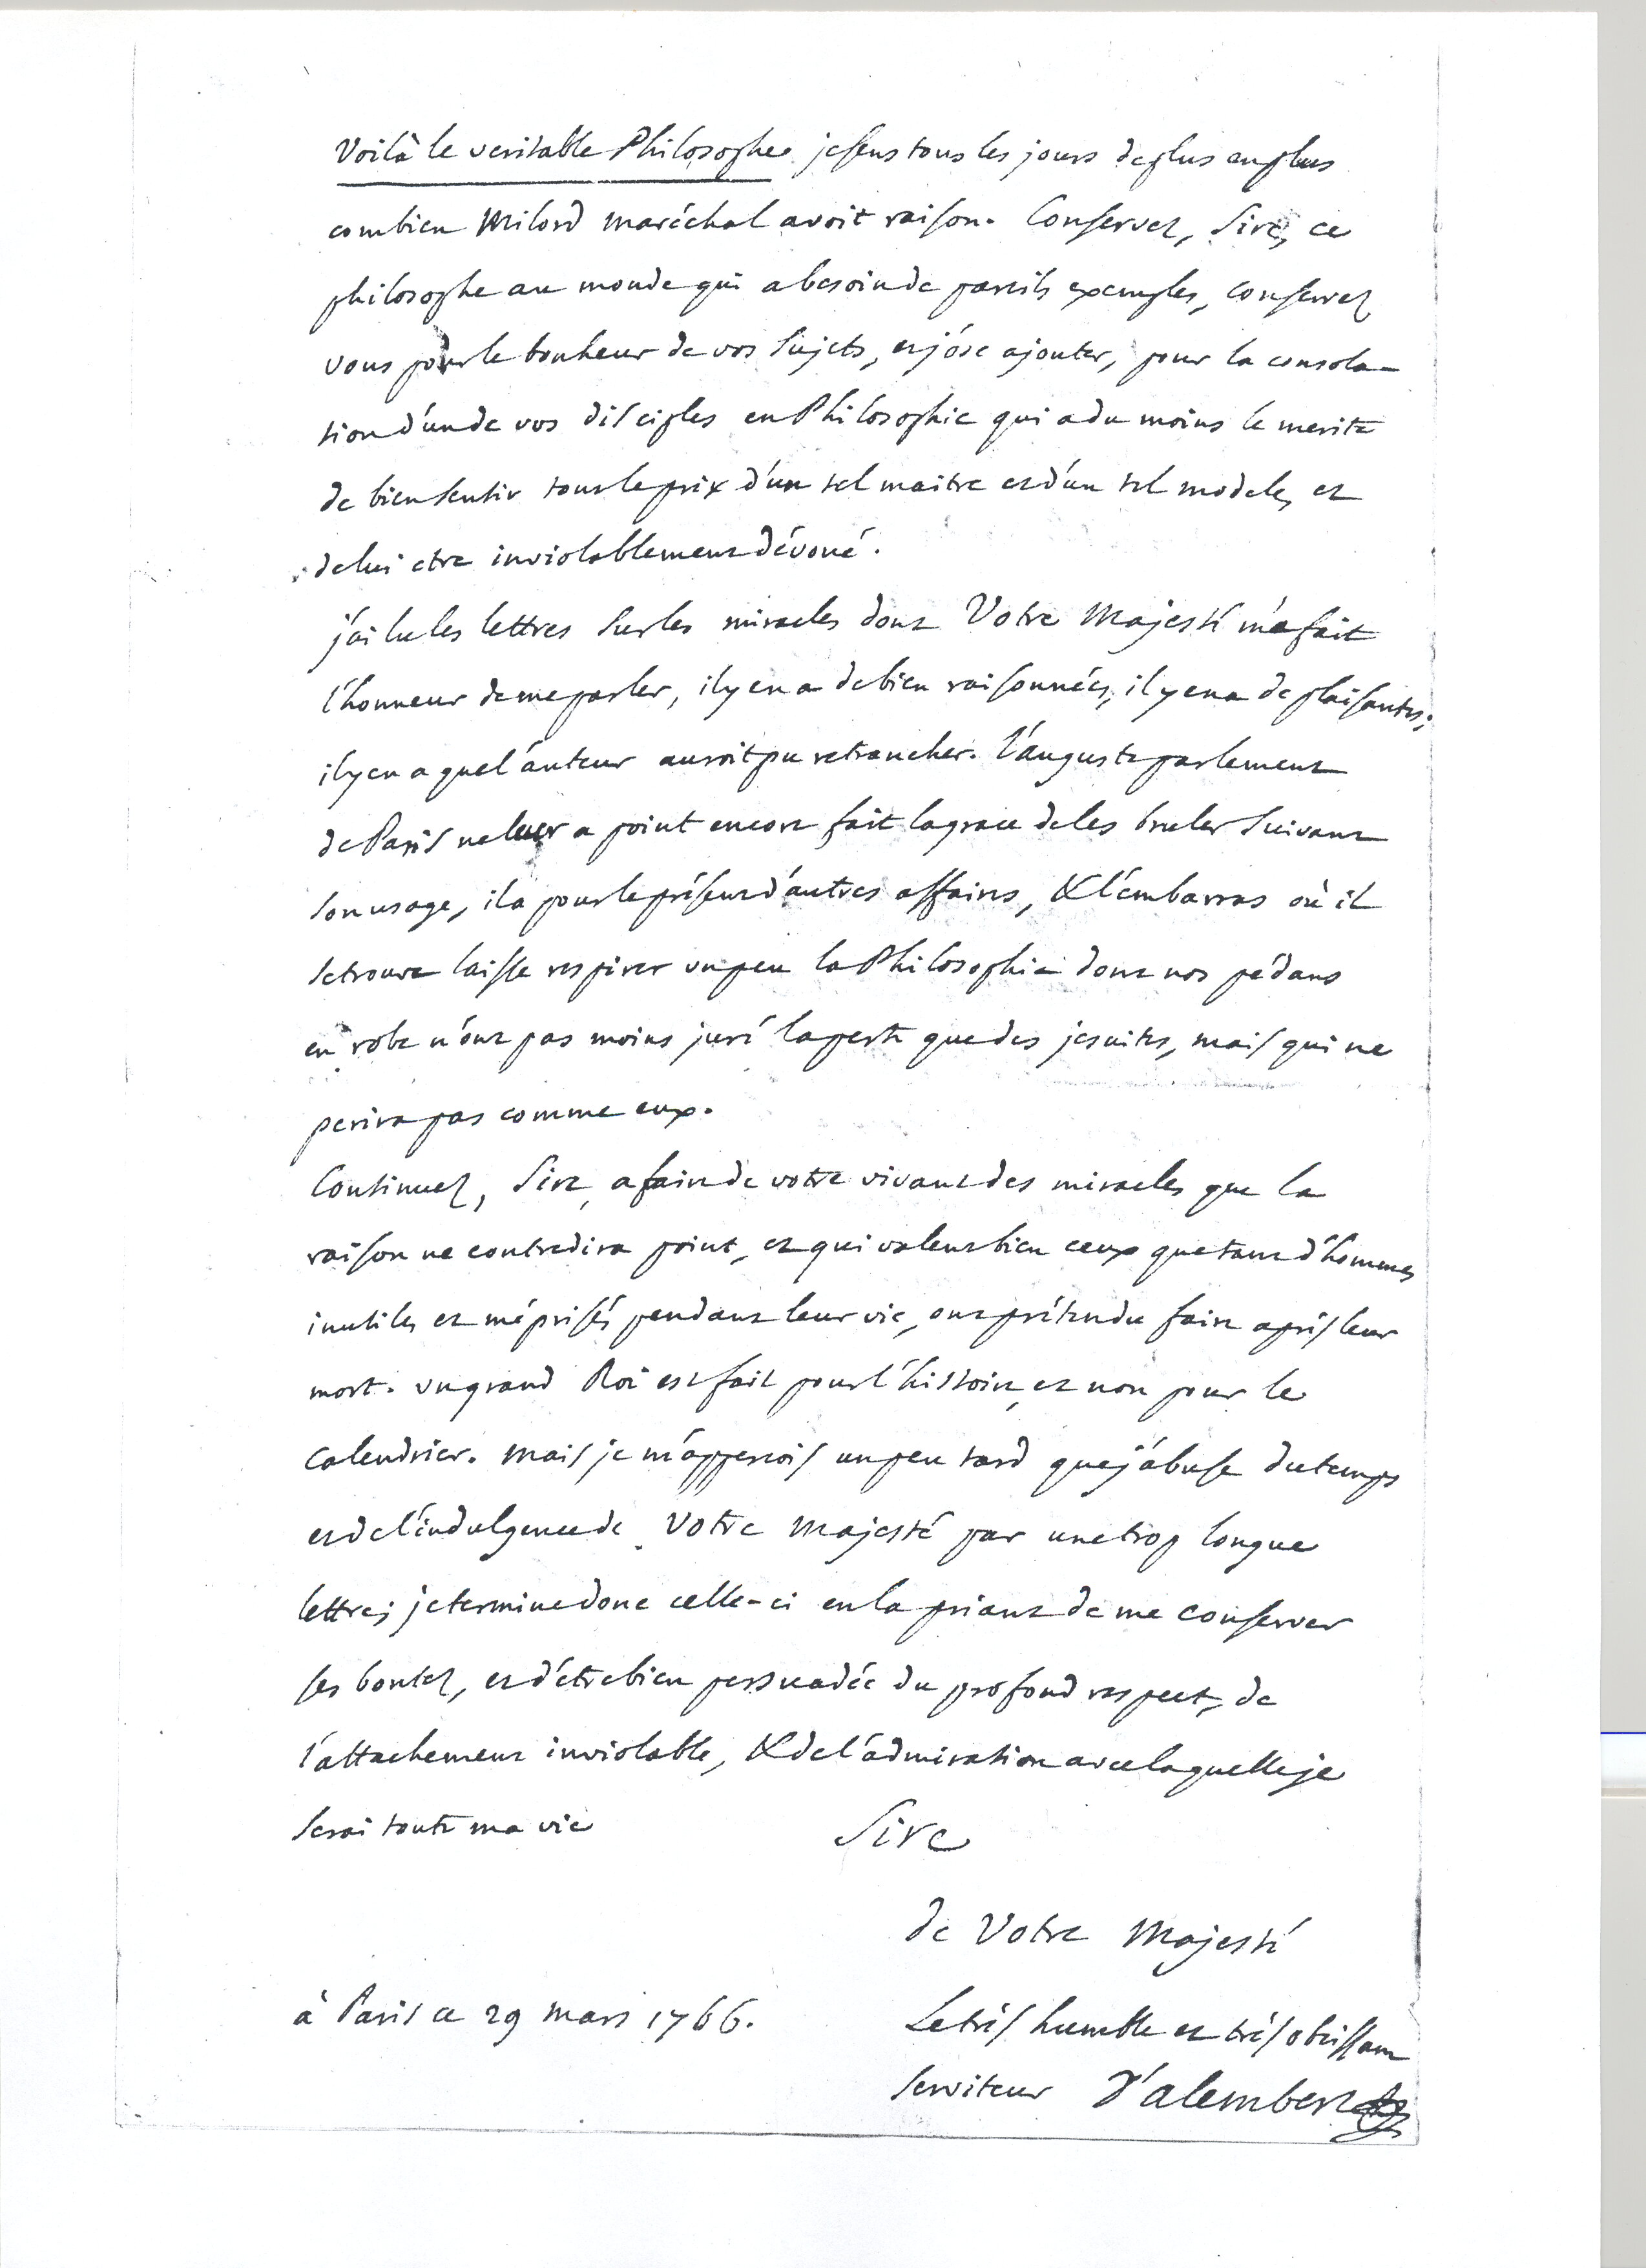 Voilà le veritable Philosophe. je sens tous les jours de plus en plus
combien Milord Maréchal avoit raison. Conservez, Sire, ce
philosophe au monde qui a besoin de pareils exemples, conservez
vous pour le bonheur de vos Sujets, et j'óse ajouter, pour la consola-
tion d'un de vos disciples en Philosophie qui a du moins le merite
de bien sentir tout le prix d'un tel maitre et d'un tel modele, et
de lui etre inviolablement dévoué.
j'ai lu les lettres sur les miracles dont Votre Majesté m'a fait
l'honneur de me parler, il y en a de bien raisonnées, il y en a de plaisantes;
il y en a que l'auteur auroit pu retrancher. l'auguste parlement
de Paris ne leur a point encore fait la grace de les bruler suivant
son usage, il a pour le présent d'autres affaires, & l'embarras où il
se trouve laisse respirer un peu la Philosophie dont nos pédans
en robe n'ont pas moins juré la perte que des jesuites, mais qui ne
perira pas comme eux.
Continuez, Sire, a faire de votre vivant des miracles que la
raison ne contredira point, et qui valent bien ceux que tant d'hommes
inutiles et méprisés pendant leur vie, ont prétendu faire après leur
mort. un grand Roi est fait pour l'histoire, et non pour le
calendrier. Mais je m'apperçois un peu tard que j'abuse du temps
et de l'indulgence de Votre Majesté par une trop longue
lettre; je termine donc celle-ci en la priant de me conserver
ses bontez, et d'être bien persuadée du profond respect, de
l'attachement inviolable, & de l'admiration avec laquelle je
serai toute ma vie
Sire
de Votre Majesté
à Paris ce 29 mars 1766.
Le très humble et très obeissant
serviteur D'alembert